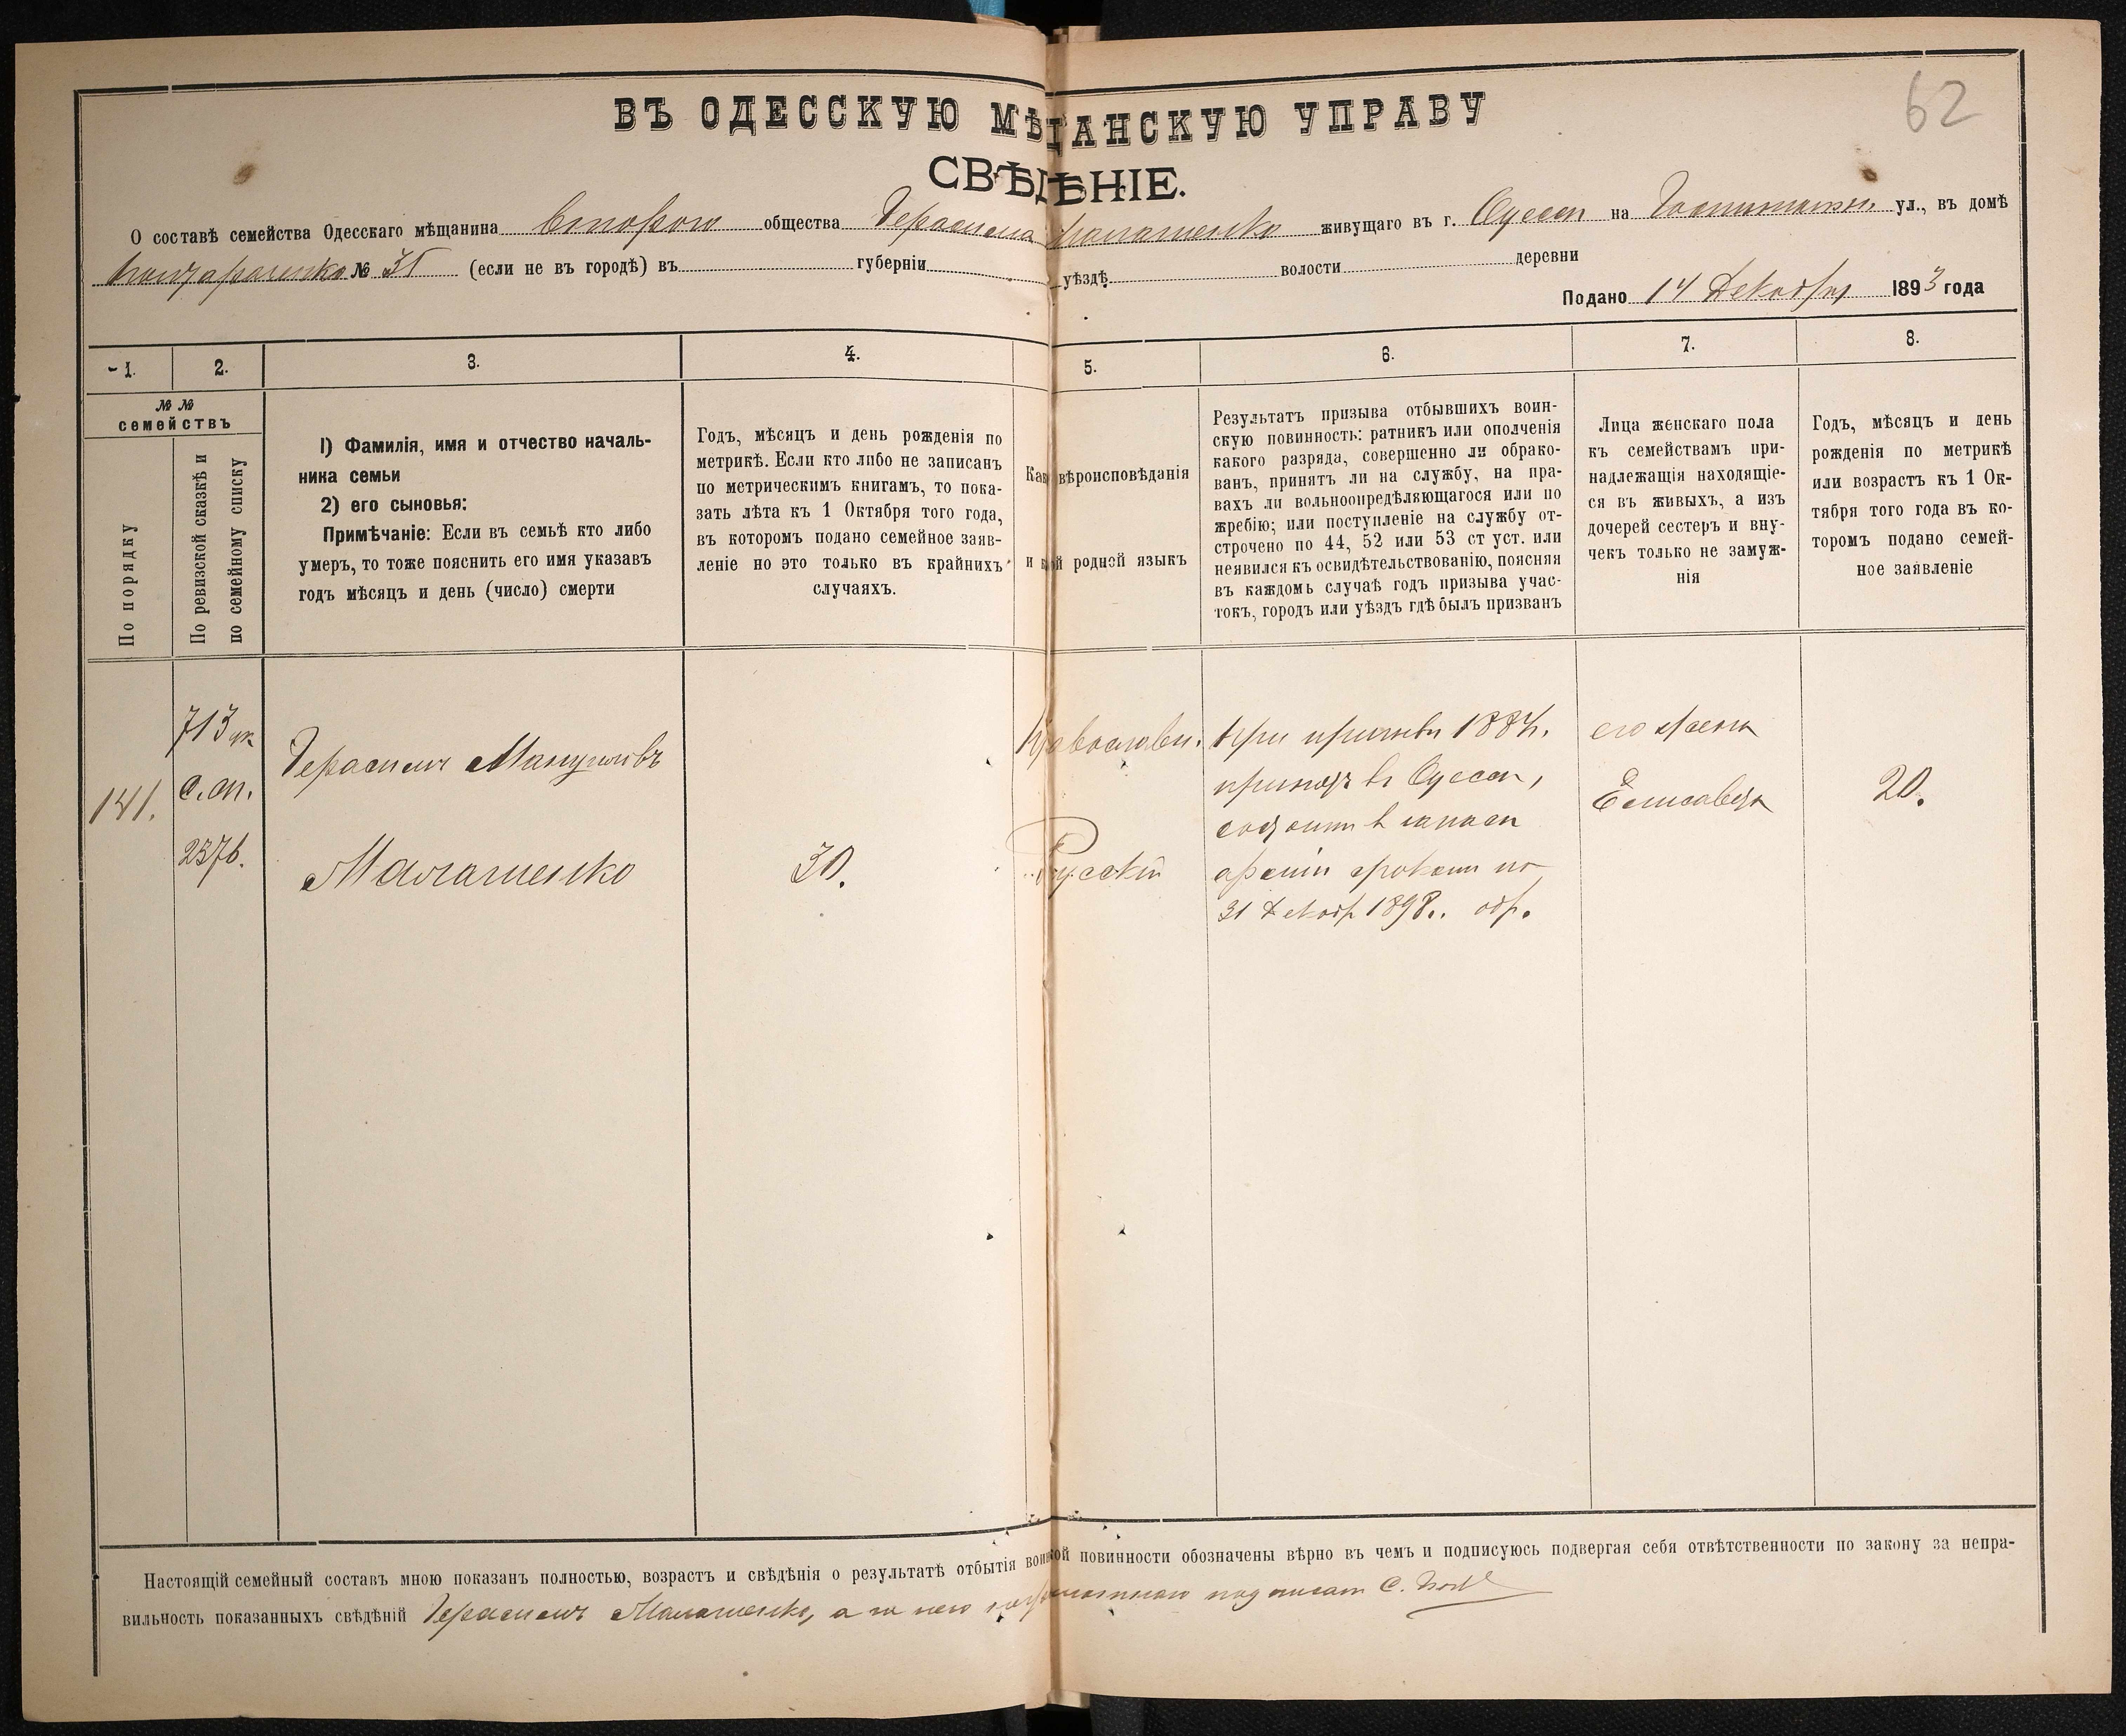 62
ВЪ ОДЕССКУЮ МѢЩАНСКУЮ УПРАВУ
СВѢДѢНІЕ.
О составѣ семейства Одесскаго мѣщанина Второго общества Герасима Малашенко живущаго въ г. Одессѣ на ул., въ домѣ
№ (если не въ городѣ) въ губерніи уѣздѣ волости деревни
Подано 14 Декабря 1893 года
1. 2. 3. 4. 5. 6. 7. 8.
№ №
семействъ
По порядку
По ревизской сказкѣ и
по семейному списку
1) Фамилія, имя и отчество началь-
ника семьи
2) его сыновья:
Примѣчаніе: Если въ семьѣ кто либо
умеръ, то тоже пояснить его имя указавъ
годъ мѣсяцъ и день (число) смерти
Годъ, мѣсяцъ и день рожденія по
метрикѣ. Если кто либо не записанъ
по метрическимъ книгамъ, то пока-
зать лѣта къ 1 Октября того года,
въ которомъ подано семейное заяв-
леніе но это только въ крайнихъ
случаяхъ.
вѣроисповѣданія
и родной языкъ
Результатъ призыва отбывшихъ воин-
скую повинность: ратникъ или ополченія
какого разряда, совершенно ли обрако-
ванъ, принятъ ли на службу, на пра-
вахъ ли вольноопредѣляющагося или по
жребію; или поступленіе на службу от-
строчено по 44, 52 или 53 ст уст. или
неявился къ освидѣтельствованію, поясняя
въ каждомъ случаѣ годъ призыва учас-
токъ, городъ или уѣздъ гдѣ былъ призванъ
Лица женскаго пола
къ семействамъ при-
надлежащія находящіе-
ся въ живыхъ, а изъ
дочерей сестеръ и вну-
чекъ только не замуж-
нія
Годъ, мѣсяцъ и день
рожденія по метрикѣ
или возрастъ къ 1 Ок-
тября того года въ ко-
торомъ подано семей-
ное заявленіе
141.
713
с.сп.
2376.
Герасимъ
Малашенко
30.
Православн.
Русскій
При призывѣ 188
въ Одессѣ,
состоитъ въ запасѣ
арміи срокомъ по
31 Декабр 1898..
его жена
Елисавета
20.
Настоящій семейный составъ мною показанъ полностью, возрастъ и свѣдѣнія о результатѣ отбытія воинской повинности обозначены вѣрно въ чемъ и подписуюсь подвергая себя отвѣтственности по закону за непра-
вильность показанныхъ свѣдѣній Герасимъ Малашенко, а за него неграмотнаго подписалъ С.